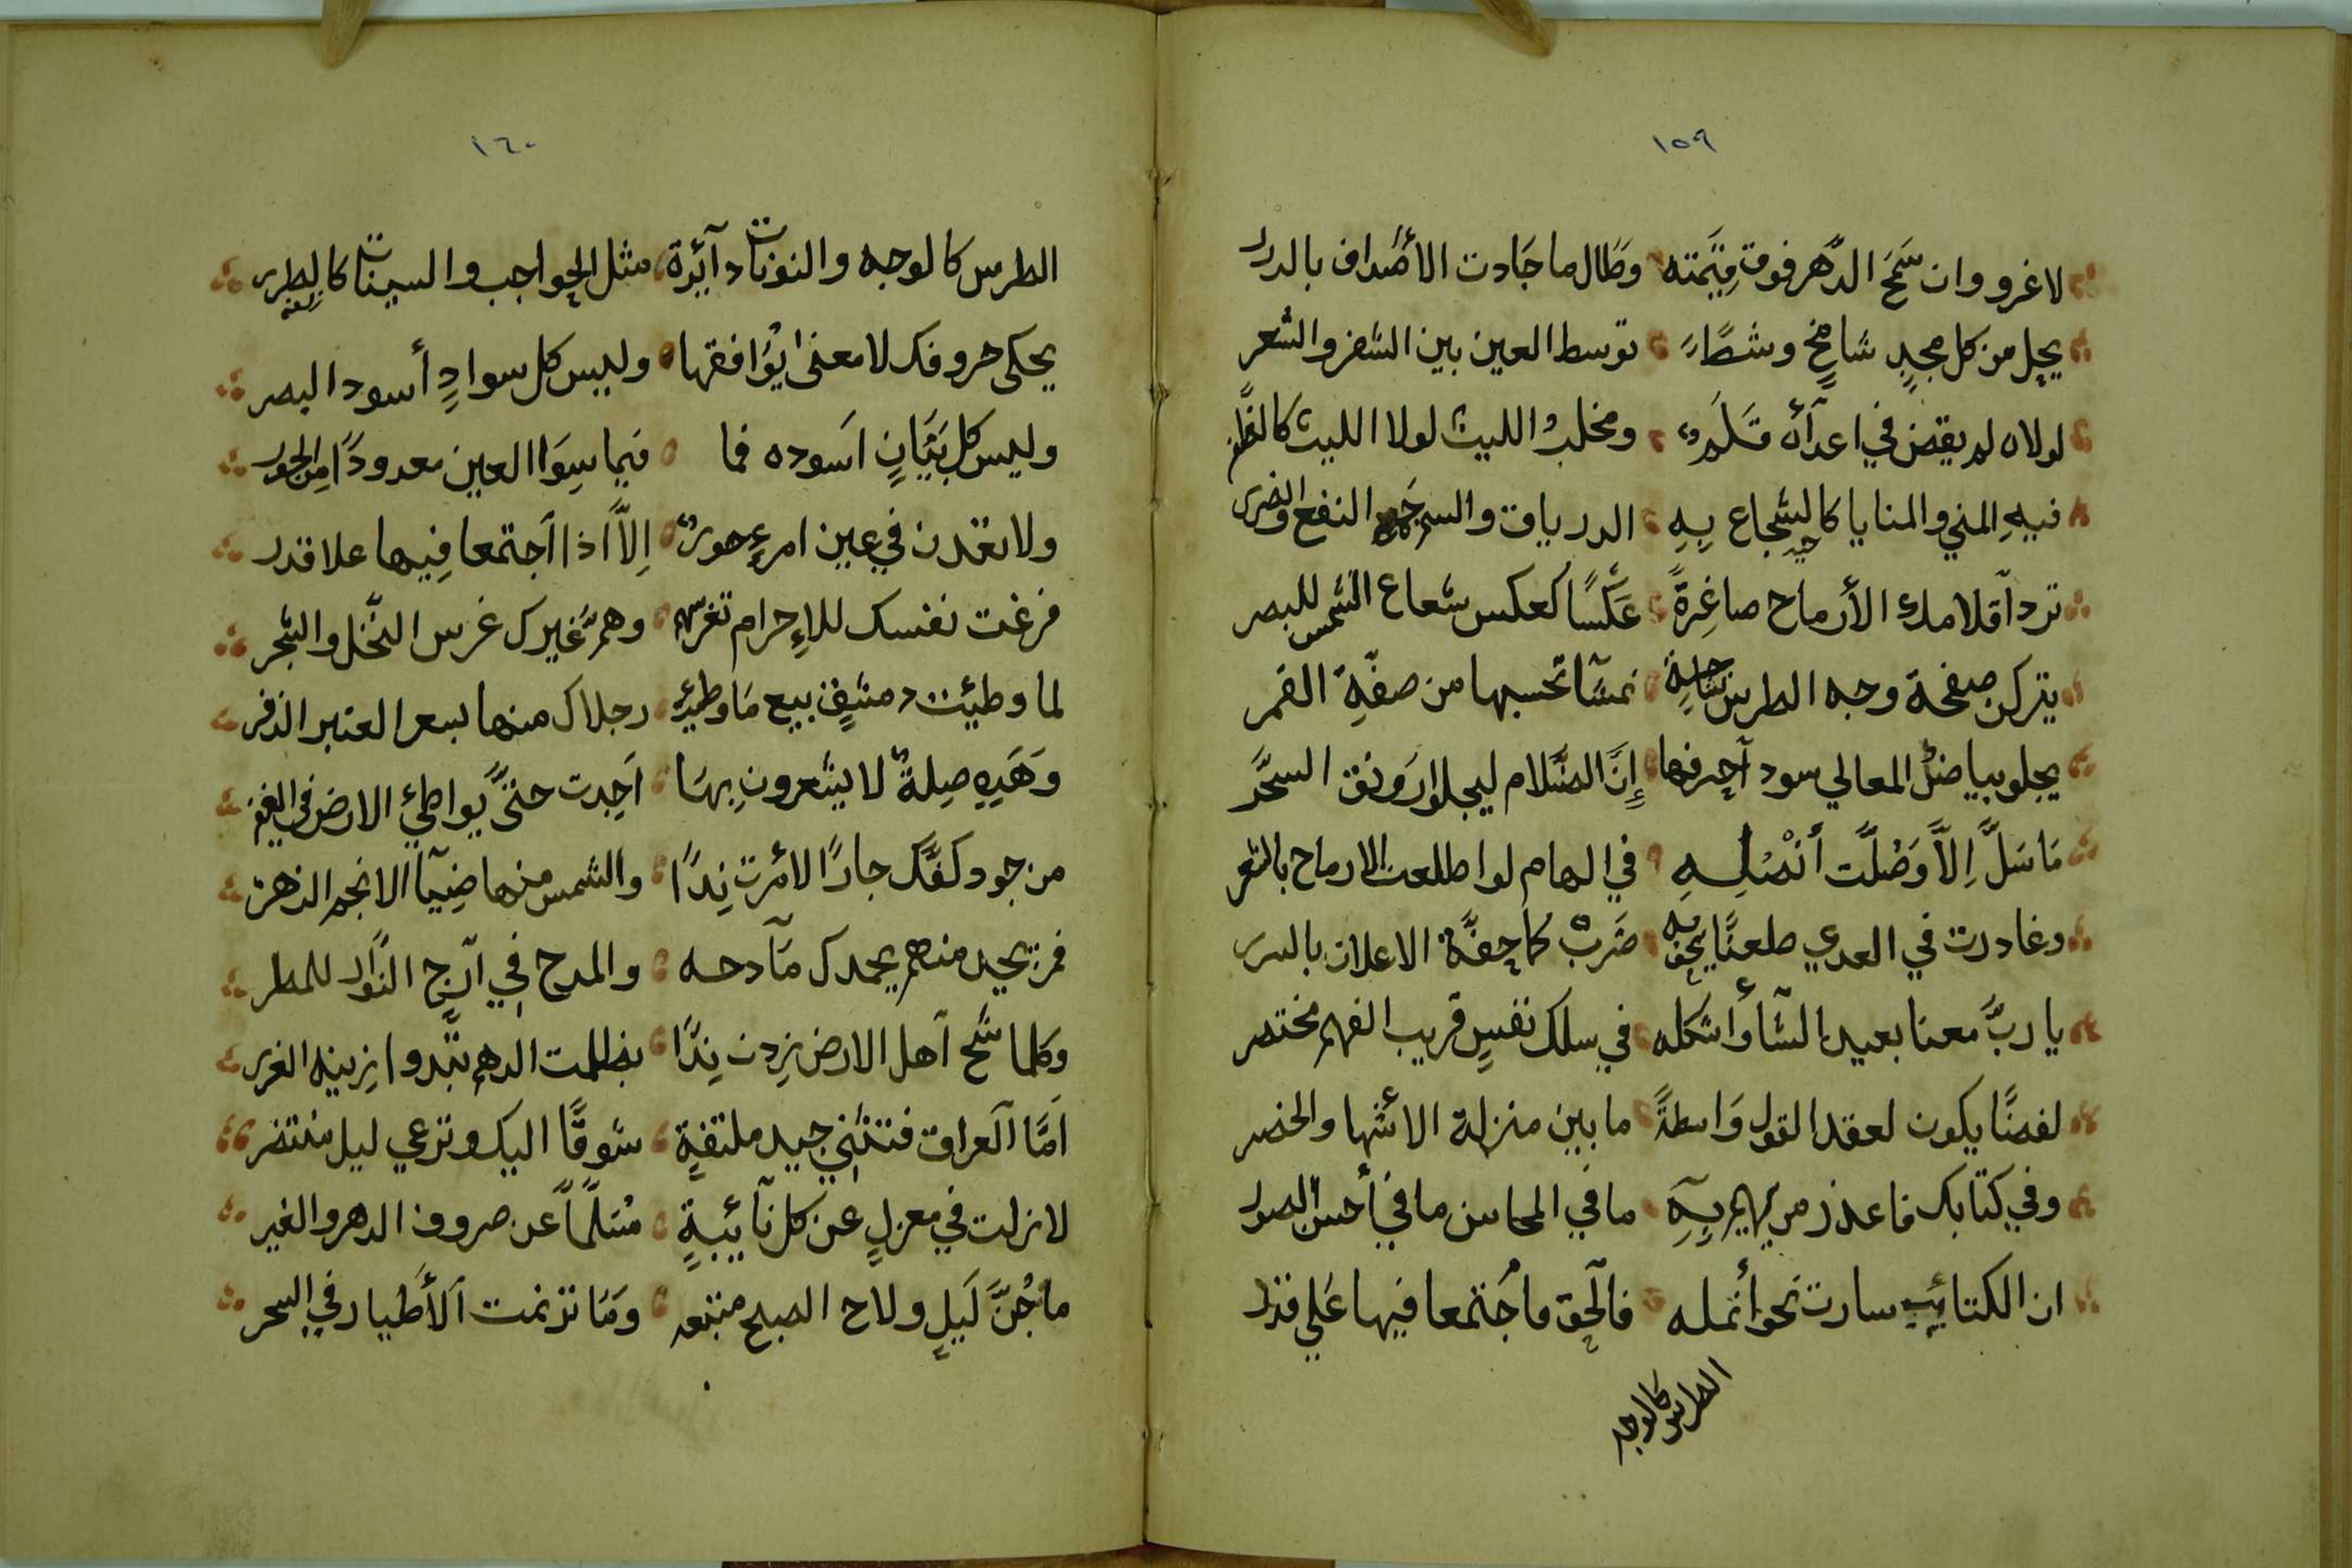 ١٥٩
لاغرو وان سَمَحَ الدَّهر فوق قِيَمته وطَال ما جَادت الأصْداف بالدرر
يحِل من كل مجدٍ شامِخٍ وسَطًا توسط العين بين الشفر والشعر
لولاه لم يقض في اعدآئه قَلَمٌ ومخلب الليث لولا الليث كالظفر
فيهِ المني والمنايا كالشجاع بِهِ الدرياق والسم جمع النفع والضرر
ترد آقلامك الأرماح صاغِرةً عَكْسًا كعكس شعاع الشمس للبصر
يتركن صفحة وجه الطرس حالية نمشًا تحسبها من صفحة القمر
يجلو بياضُ المعالي سود آحرفها إنَّ الظَّلام ليجلوا رَونق السَّحَر
مَا سَلَّ اِلاَّ وَصَلَّت أنْصُلِهِ في الهام لو اطلعت الارماح بالثمر
وغادرت في العدي طعنًا يحفه ضَربٌ كما حِفَّة الاعلان بالسرر
يا ربَّ معنا بعيد الشأو اشكله في سلك نفسٍ قريب الفهم مختصر
لفضًا يكون لعقد القول وَاسطةً ما بين منزلة الاشها والخصر
وفي كتابك فاعذر من يهيم بِهِ ما في المحاسن ما في أحسن الصور
ان الكتائب سارت نحو أنمله فآلحق ما أجتمعا فيها عَلي قدر
الطرس كالوجه
١٦٠
الطرس كالوجه والنونات دآئرة مثل الحواجب والسينات كالطرر
يحكى حروفك لا معنى يُوَافقها وليس كل سوادٍ أسود البصر
وليس كل بَيَانٍ اَسوده فما فيما سِوَا العين معدودًا من الحور
ولا تعدن في عين امرءٍ حورٌ اِلاَّ اذا آجتمعا فِيها علا قدر
فرغت نفسك للاِحرام تغرسه وهم غيرك غرس النَّخل والشجر
لما وطيئت دمشقٍ بيع مَا وطيئه رجلاك منها بسعر العنبر الذفر
وَهَذِهِ صِلةٌ لا يشعرون بِهَا اَجدت حتىَّ يواطئ الارض في الغفر
من جود كفَّك جارًا لائمرت نِدًا والشمس منها ضِيآ الانجم الذهر
فمن يجد منهم بحمدك مَآدحه والمدح في آرج النُّوَّار للمطر
وكلما شح آهل الارض زدت نِدًا بظلمت الدهر تبدوا زينه الغرر
اَمَّا آلعراق فتثني جيد ملتفةٍ شوقًا اليك وترعي ليل منتضر
لا زلت في معزلٍ عن كل نآئيبةٍ مُسَلَّمًا عن صروف الدهر والغير
ما جُنَّ لَيلٍ ولاح الصبح متبعه وَمَا ترنمت اَلأَطيار في السحر